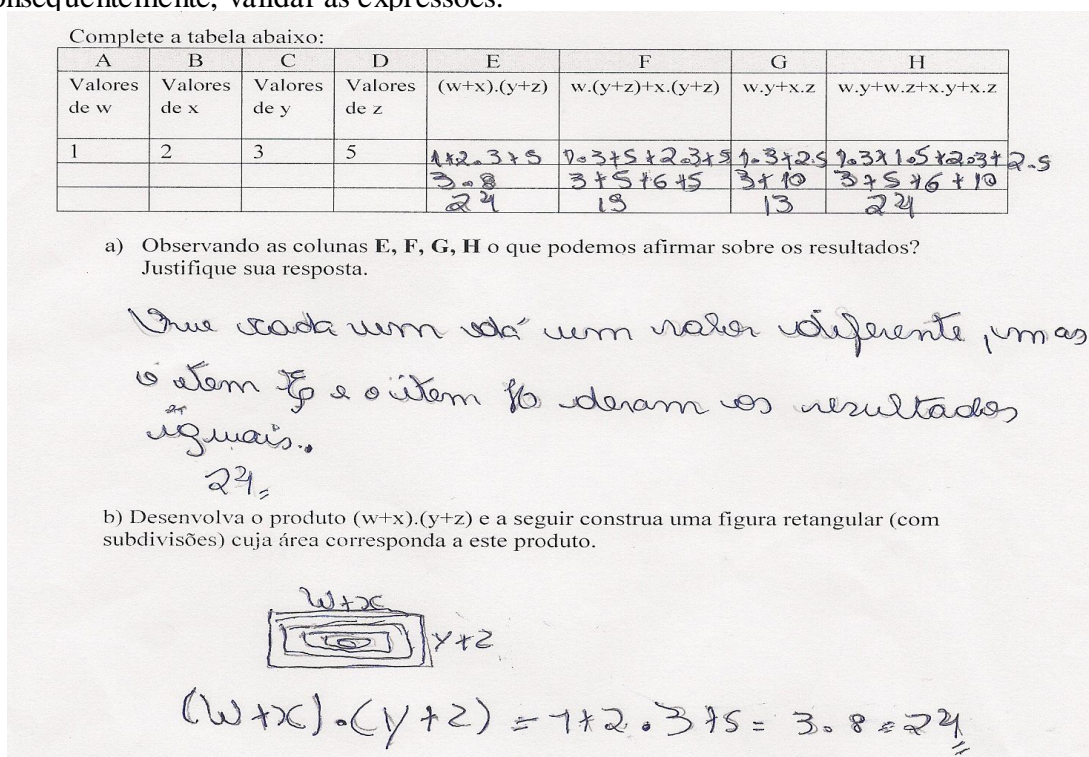 onsequentemente, validar as expressões.
Complete a tabela abaixo:
A B C D E F G H
Valores de w Valores de x Valores de y Valores de z (w+x).(y+z) w.(y+z)+x.(y+z) w.y+x.z w.y+w.z+x.y+x.z
1 2 3 5 1+2.3+5 1.3+5+2.3+5 1.3+2.5 1.3+1.5+2.3+2.5
3.8 3+5+6+5 3+10 3+5+6+10
24 19 13 24
a) Observando as colunas E, F, G, H o que podemos afirmar sobre os resultados?
Justifique sua resposta.
Que cada um dá um valor diferente, mas
o item E e o item H deram os resultados
iguais.
24
b) Desenvolva o produto (w+x).(y+z) e a seguir construa uma figura retangular (com
subdivisões) cuja área corresponda a este produto.
w+x
y+z
(w+x).(y+z) = 1+2.3+5 = 3.8 = 24